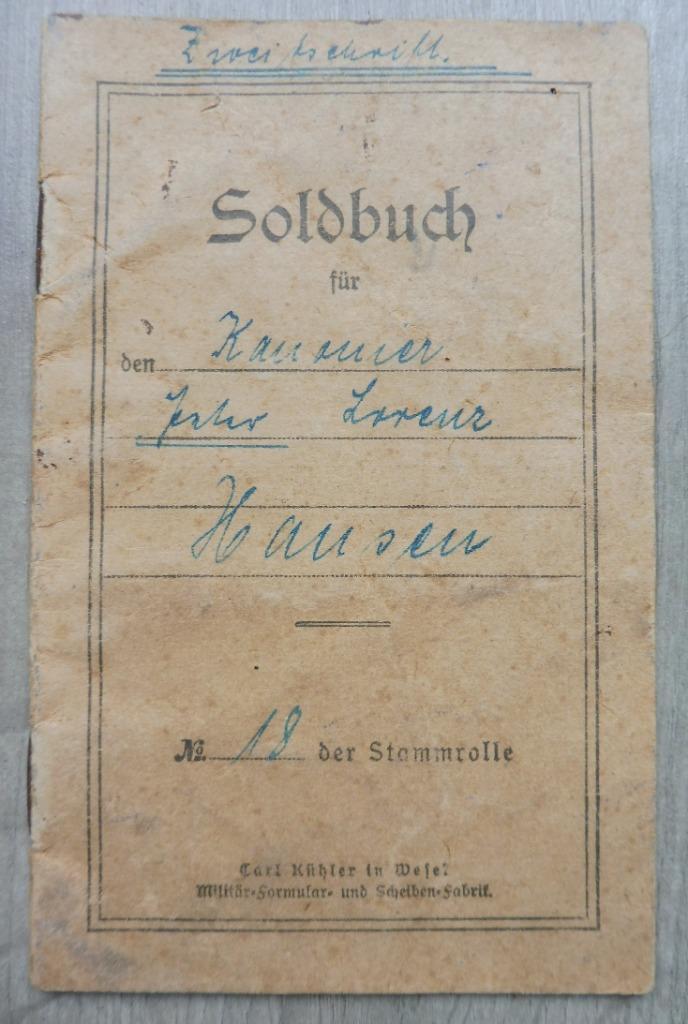 Zweitschrift.
Soldbuch
für
den Kanonier
Peter Lorenz
Hansen
No. 18 der Stammrolle
Carl Kühler in Wesel
Militär-Formular- und Scheiben-Fabrik.